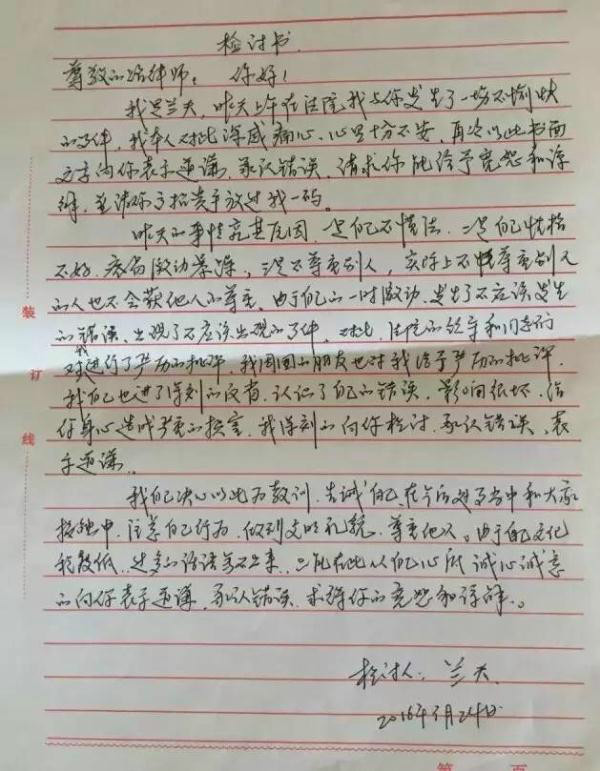 检讨书
尊敬的 律师：你好！
我是兰天，昨天上午在法院我与你发生了一场不愉快
的事件，我本人对此深感痛心，心里十分不安，再次以此书面
方式向你表示道谦，承认错误，请求你能给予宽恕和谅
解，并请你高抬贵手放过我一码。
昨天的事情究其原因一是自己不懂法．二是自己性格
不好．容易激动暴躁，三是不尊重别人，实际上不懂尊重别人
的人也不会获他人的尊重．由于自己的一时激动．发生了不应该发生
的错误．出现了不应该出现的事件．对此，法院的领导和同志们
对我进行了严厉的批评．我周围的朋友也对我给予严厉的批评．
我自己也进了深刻的反省．认识了自己的错误．影响很坏．给
你身心造成严重的损害．我深刻的向你检讨．承认错误、表
示道谦．
我自己决心以此为教训．告诫自己在今后 当中和大家
接触中．注意自己行为．做到文明礼貌．尊重他人。由于自己文化
程度低．过多的话语写不出来．只能在此以自己心底诚心诚意
的向你表示道谦．承认错误．求得你的宽恕和谅解。
检讨人：兰天．
2016年 月24日
装
订
线
第 页